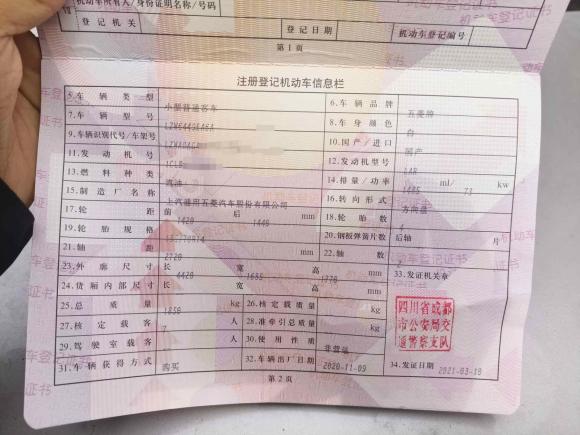 机动车所有人/身份证明名称/号码
登记机关 登记日期 机动车登记编号
第1页
注册登记机动车信息栏
5.车辆类型 小型普通客车 6.车辆品牌 五菱牌
7.车辆型号 8.车身颜色 白
9.车辆识别代号/车架号 10.国产/进口 国产
11.发动机号 12.发动机型号 LAR
13.燃料种类 汽油 14.排量/功率 1485 ml/ 73 kw
15.制造厂名称 上汽通用五菱汽车股份有限公司 16.转向形式 方向盘
17.轮距 前 1420 后 1440 mm 18.轮胎数 4
19.轮胎规格 20.钢板弹簧片数 后轴 片
21.轴距 2720 mm 22.轴数
23.外廓尺寸 长 4420 宽 1685 高 1770 mm 33.发证机关章
24.货厢内部尺寸 长 宽 高 mm
25.总质量 1850 kg 26.核定载质量 kg 四川省成都
27.核定载客 7 人 28.准牵引总质量 kg 市公安局交
29.驾驶室载客 人 30.使用性质 非营运 通警察支队
31.车辆获得方式 购买 32.车辆出厂日期 2020-11-09 34.发证日期 2021-03-18
第2页